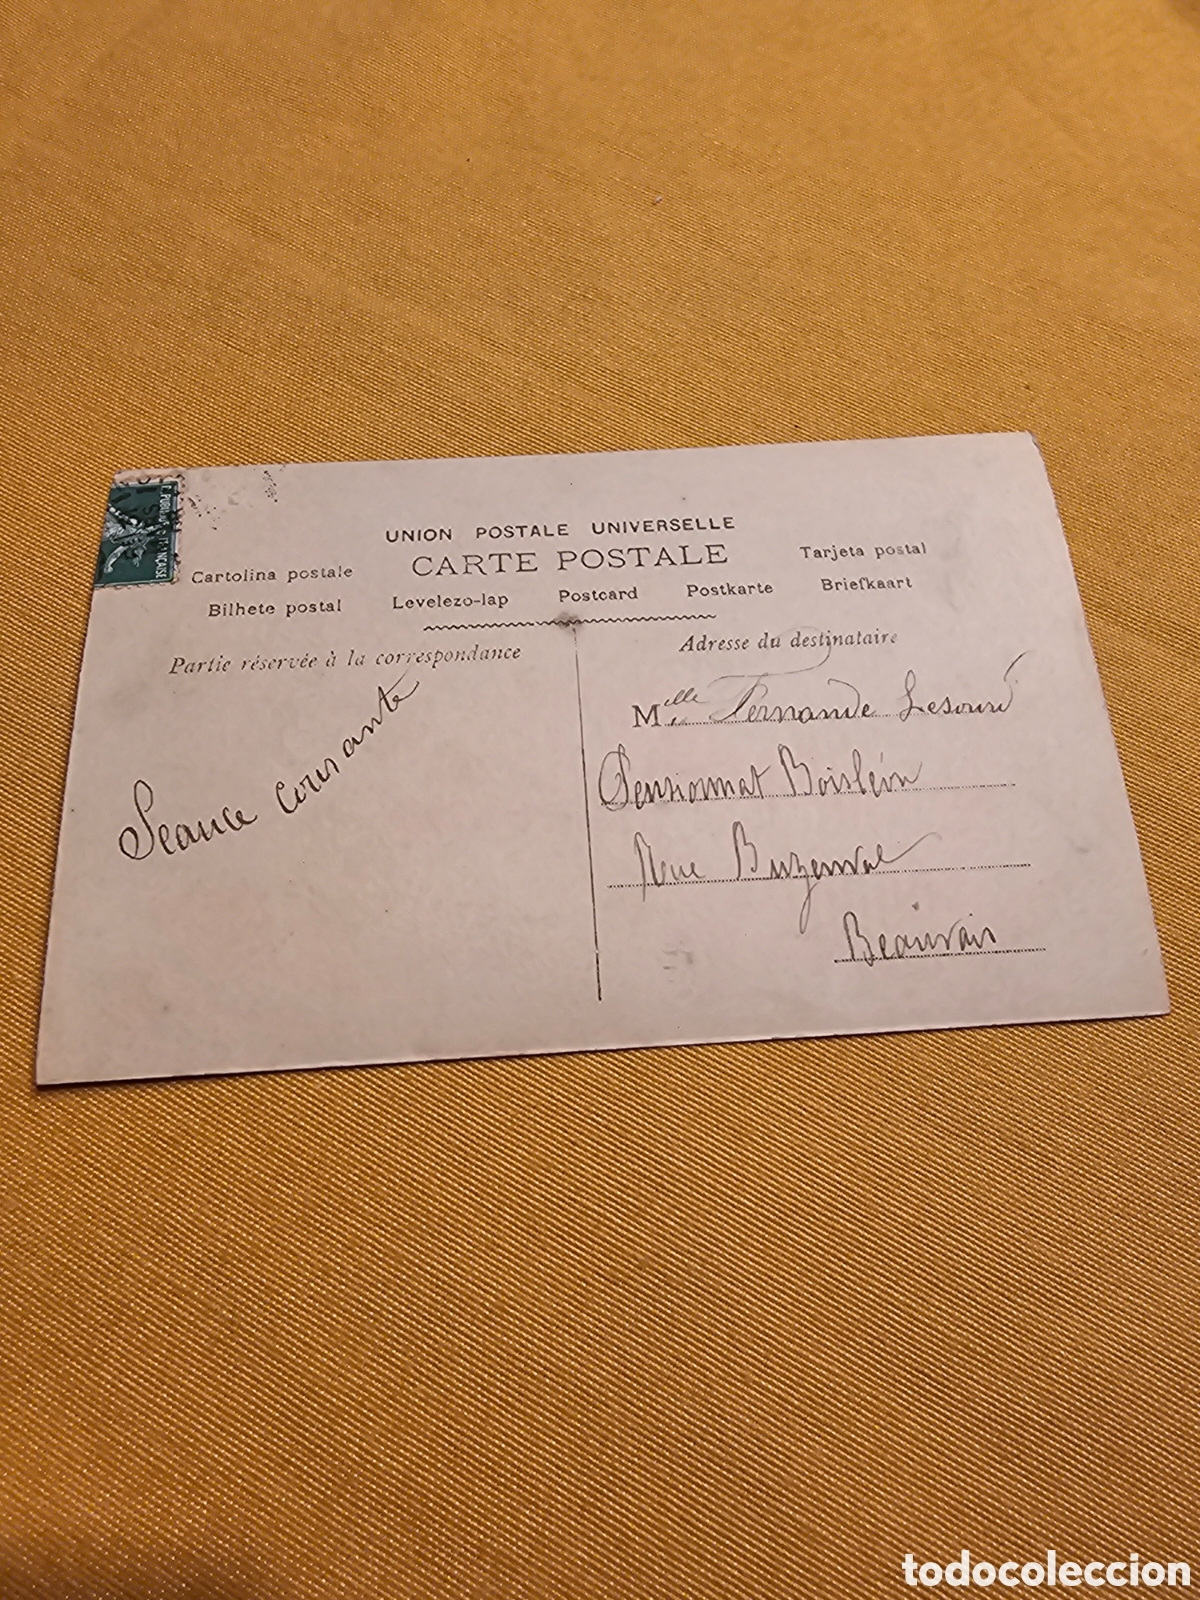 UNION POSTALE UNIVERSELLE
CARTE POSTALE
Cartolina postale
Tarjeta postal
Bilhete postal
Levelezo-lap
Postcard
Postkarte
Briefkaart
Partie réservée à la correspondance
Seance courante
Adresse du destinataire
Mlle Fernande Lesourd
Pensionnat Boisléon
Rue Buzenval
Beauvais
todocoleccion